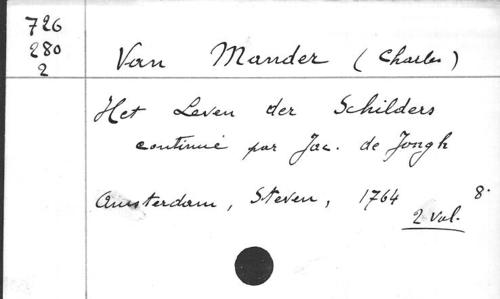 726
280
2
Van Mander (Charles)
Het Leven der Schilders
continué par Jac. de Jongh
Amsterdam, Steven, 1764 8.
2 vol.